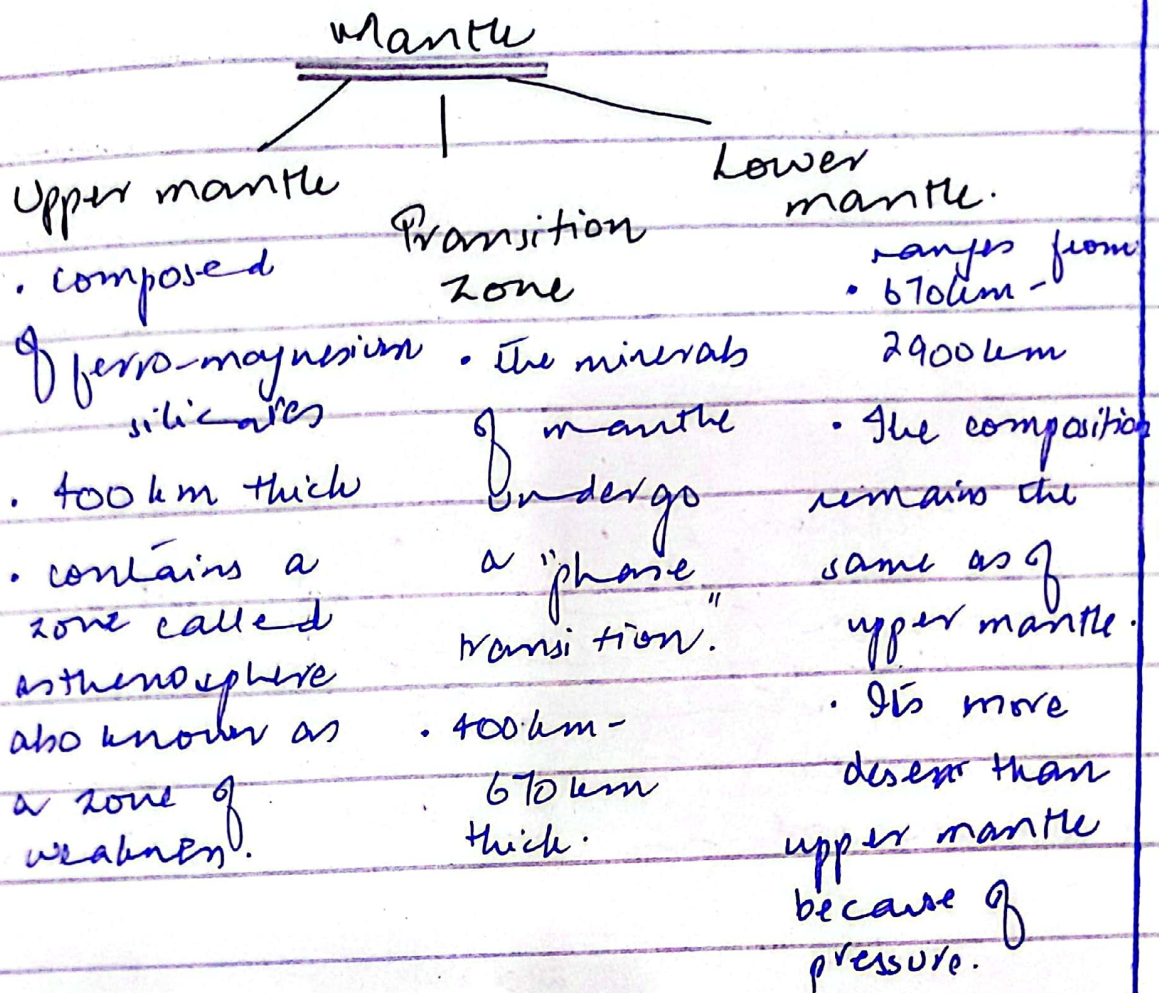 Mantle
Upper mantle
. composed
of ferro-magnesium
silicates
. 400 km thick
. contains a
zone called
asthenosphere
also known as
a zone of
weakness.
Transition
zone
. The minerals
of manthe
undergo
a "phase
transition."
. 400 km -
670 km
thick.
Lower
mantle.
ranges from
. 670 km -
2900 km
. The composition
remains the
same as of
upper mantle.
. Its more
than
upper mantle
because of
pressure.